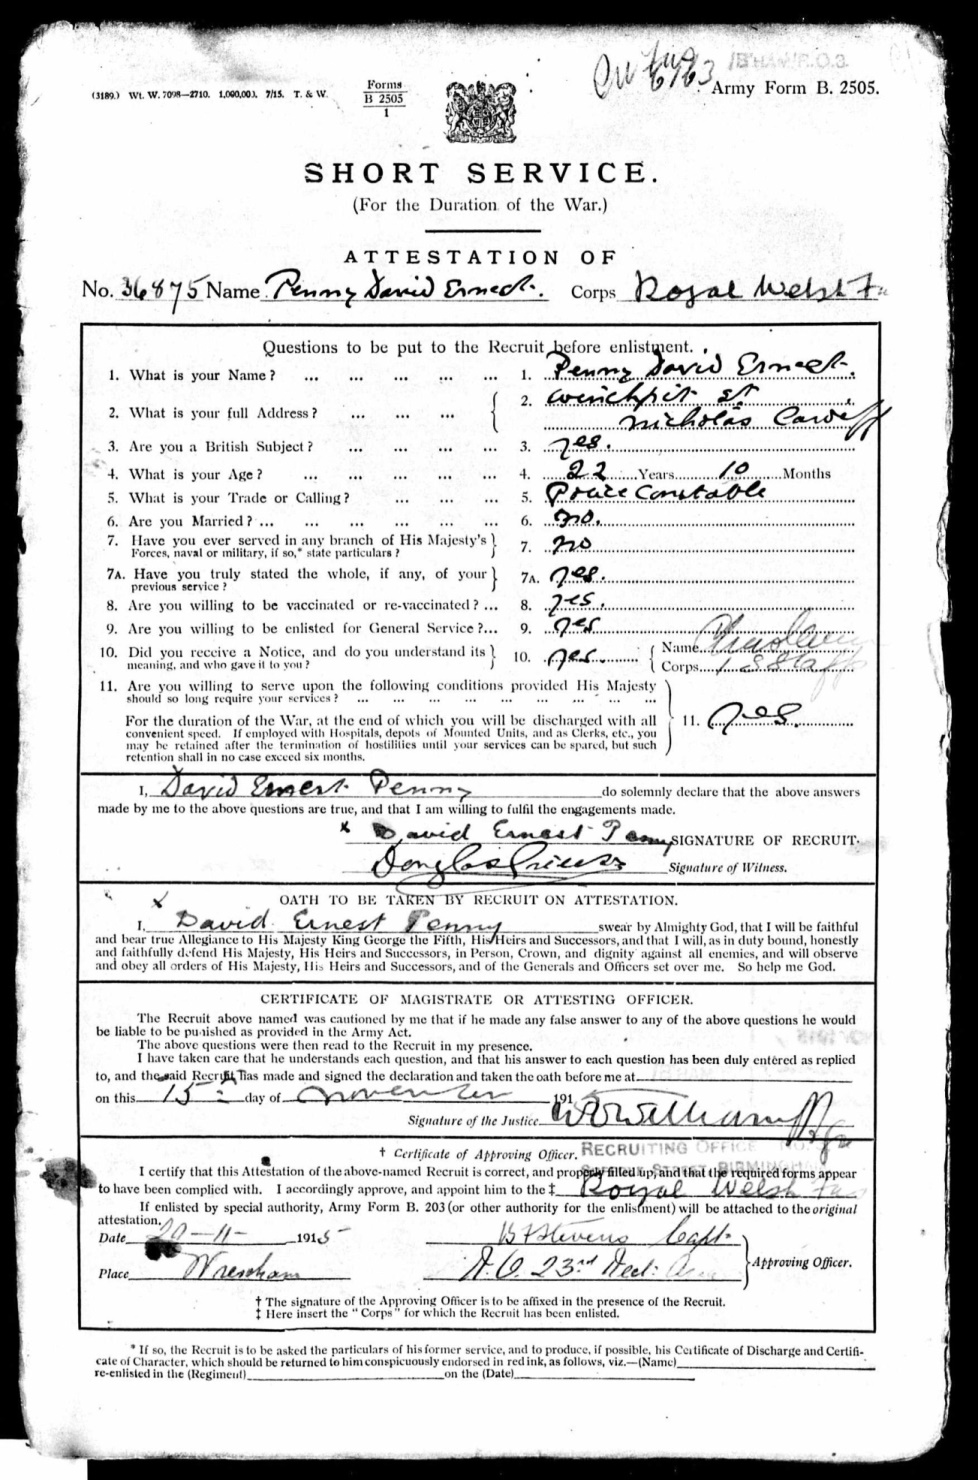 (3189.) Wt. W. 7098—2710. 1,000,000. 7/15. T. & W.
Forms
B 2505
1
Army Form B. 2505.
SHORT SERVICE.
(For the Duration of the War.)
ATTESTATION OF
No. 36875 Name Penny David Ernest. Corps Royal Welsh Fu
Questions to be put to the Recruit before enlistment.
1. What is your Name? ... ... ... ... ... 1. Penny David Ernest.
2. What is your full Address? ... ... ... 2. St
Nicholas Cardiff
3. Are you a British Subject? ... ... ... ... 3. yes.
4. What is your Age? ... ... ... ... ... 4. 22 Years 10 Months
5. What is your Trade or Calling? ... ... ... 5. Police Constable
6. Are you Married? ... ... ... ... ... ... 6. no.
7. Have you ever served in any branch of His Majesty's
Forces, naval or military, if so,* state particulars? 7. no
7A. Have you truly stated the whole, if any, of your
previous service? 7A. yes.
8. Are you willing to be vaccinated or re-vaccinated? ... 8. yes.
9. Are you willing to be enlisted for General Service?... 9. yes
10. Did you receive a Notice, and do you understand its
meaning, and who gave it to you? 10. yes. Name
Corps
11. Are you willing to serve upon the following conditions provided His Majesty
should so long require your services? ... ... ... ... ... ... ... ... ...
For the duration of the War, at the end of which you will be discharged with all
convenient speed. If employed with Hospitals, depots of Mounted Units, and as Clerks, etc., you
may be retained after the termination of hostilities until your services can be spared, but such
retention shall in no case exceed six months.
11. yes.
I, David Ernest Penny do solemnly declare that the above answers
made by me to the above questions are true, and that I am willing to fulfil the engagements made.
x David Ernest Penny SIGNATURE OF RECRUIT.
Douglas Signature of Witness.
OATH TO BE TAKEN BY RECRUIT ON ATTESTATION.
x
I, David Ernest Penny swear by Almighty God, that I will be faithful
and bear true Allegiance to His Majesty King George the Fifth, His Heirs and Successors, and that I will, as in duty bound, honestly
and faithfully defend His Majesty, His Heirs and Successors, in Person, Crown, and dignity against all enemies, and will observe
and obey all orders of His Majesty, His Heirs and Successors, and of the Generals and Officers set over me. So help me God.
CERTIFICATE OF MAGISTRATE OR ATTESTING OFFICER.
The Recruit above named was cautioned by me that if he made any false answer to any of the above questions he would
be liable to be punished as provided in the Army Act.
The above questions were then read to the Recruit in my presence.
I have taken care that he understands each question, and that his answer to each question has been duly entered as replied
to, and the said Recruit has made and signed the declaration and taken the oath before me at
on this 15 day of November 191
Signature of the Justice
† Certificate of Approving Officer. RECRUITING OFFICE
BIRMINGHAM
I certify that this Attestation of the above-named Recruit is correct, and properly filled up, and that the required forms appear
to have been complied with. I accordingly approve, and appoint him to the ‡ Royal Welsh Fus
If enlisted by special authority, Army Form B. 203 (or other authority for the enlistment) will be attached to the original
attestation.
Date 20-11- 1915 Stevens Capt.
Place Wrexham R.O. 23rd Rect. Area Approving Officer.
† The signature of the Approving Officer is to be affixed in the presence of the Recruit.
‡ Here insert the "Corps" for which the Recruit has been enlisted.
* If so, the Recruit is to be asked the particulars of his former service, and to produce, if possible, his Certificate of Discharge and Certifi-
cate of Character, which should be returned to him conspicuously endorsed in red ink, as follows, viz.—(Name)
re-enlisted in the (Regiment) on the (Date)